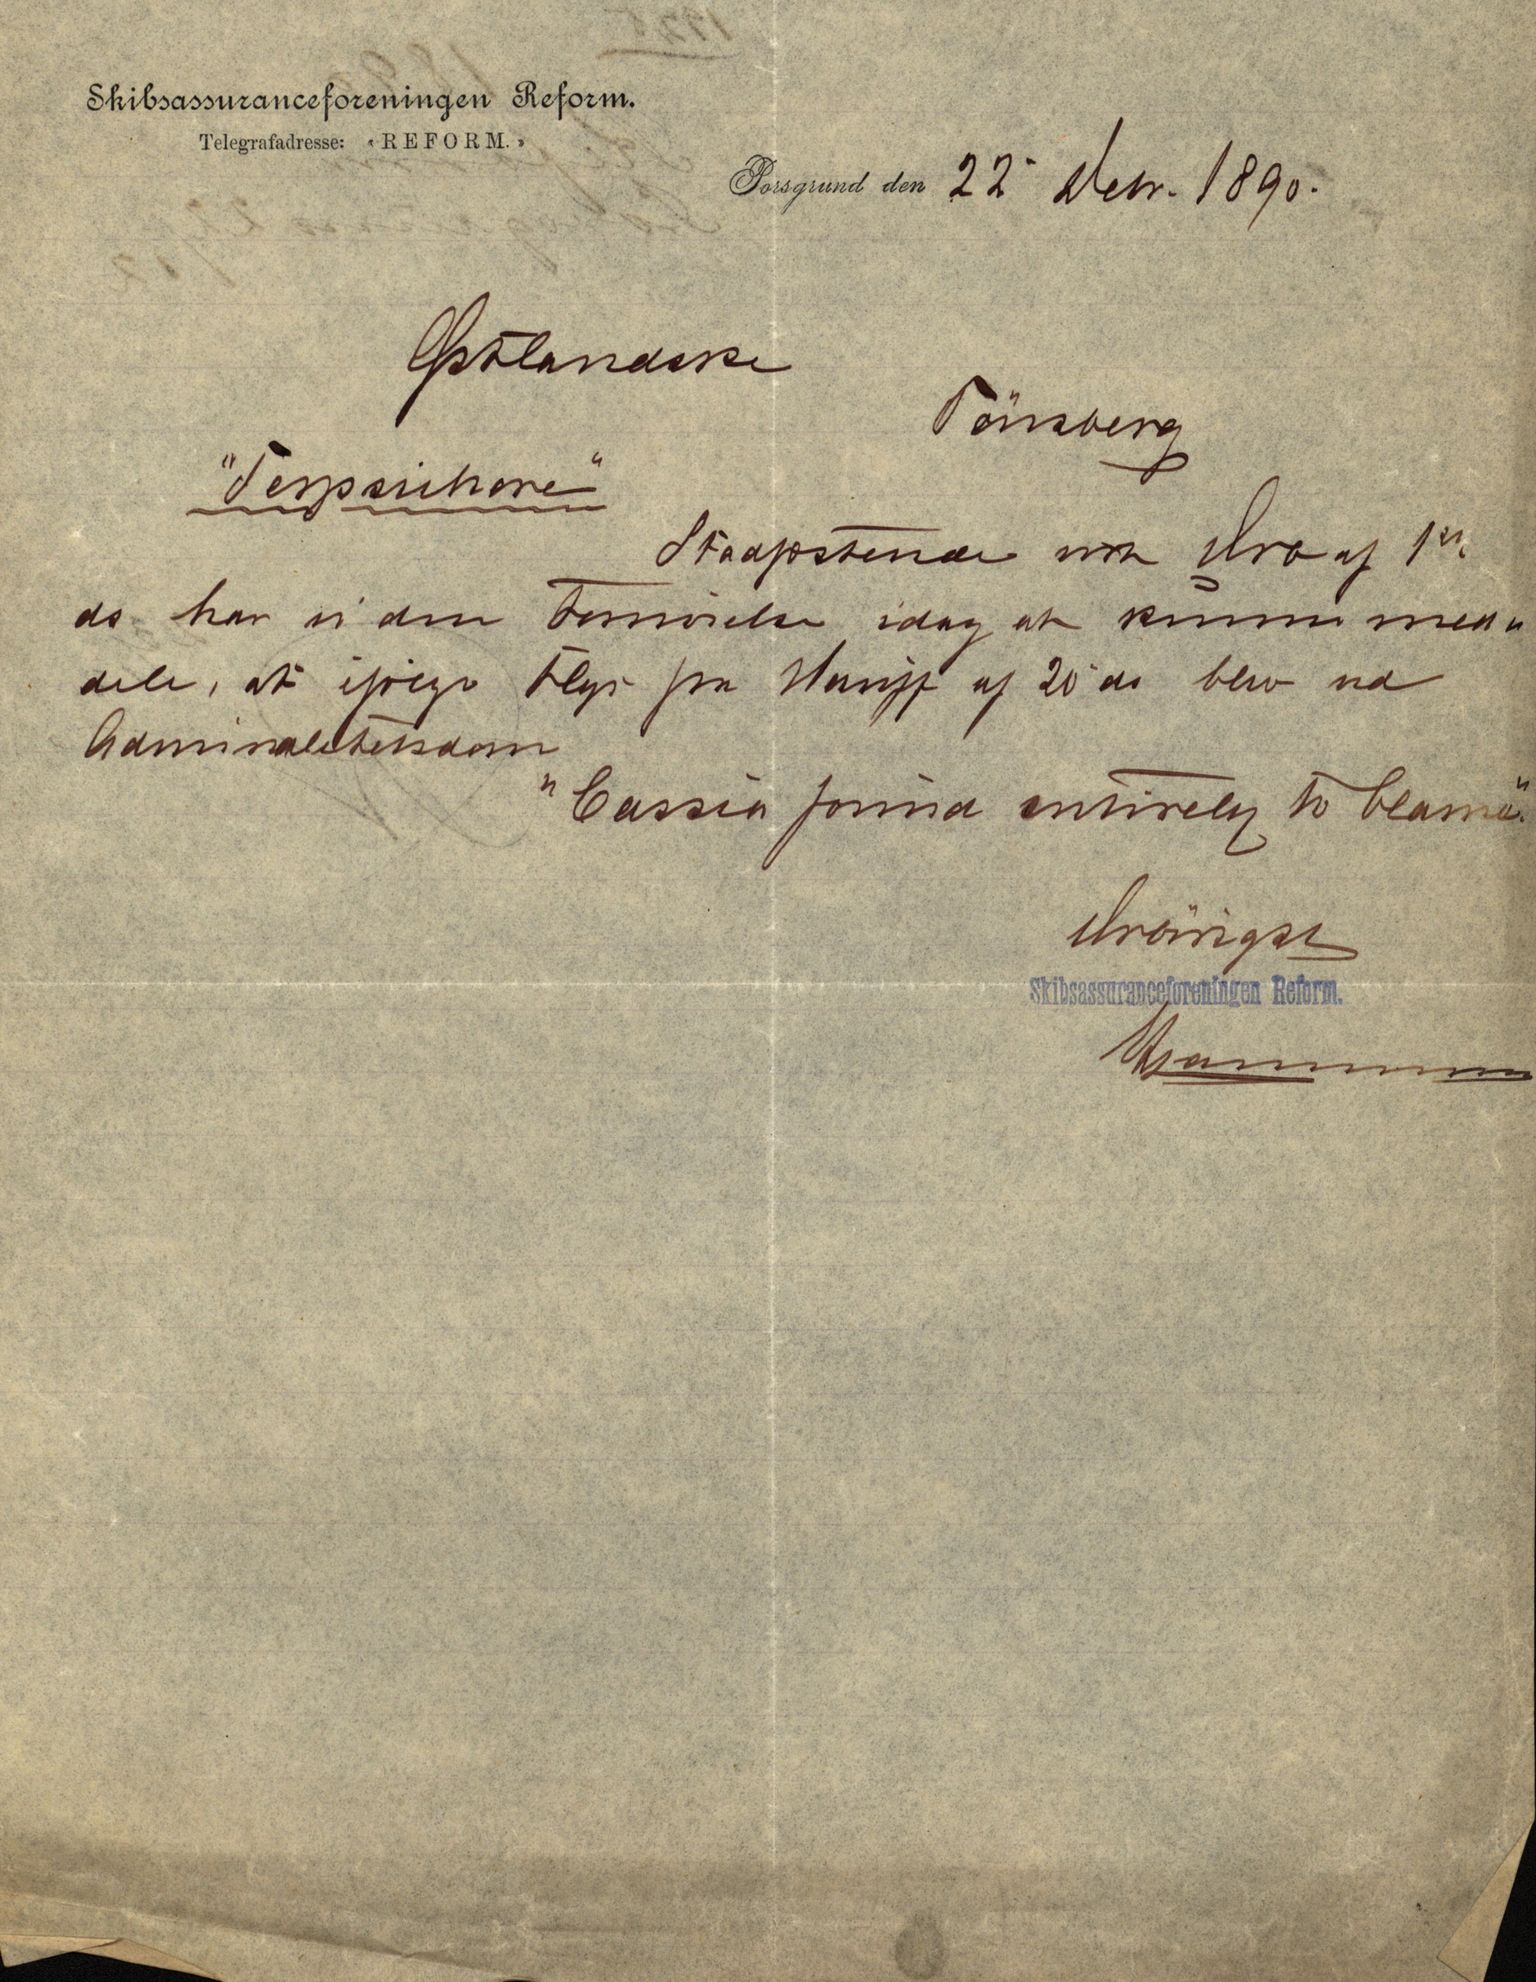 Skibsassuranceforeningen Reform.
Telegrafadresse: «REFORM.»
Porsgrund den 22 Debr. 1890.
Østlandske
Tönsberg
"Terpsichore"
Stadfæstende vort Ærb af 1ste
ds har vi den Fornöielse idag at kunne med„
dele, at ifölge Tlgr fra Harijs af 20 ds blev ved
Admiralitetsdom
"Cassia found entirely to blame".
Ærbörigst
Skibsassuranceforeningen Reform.